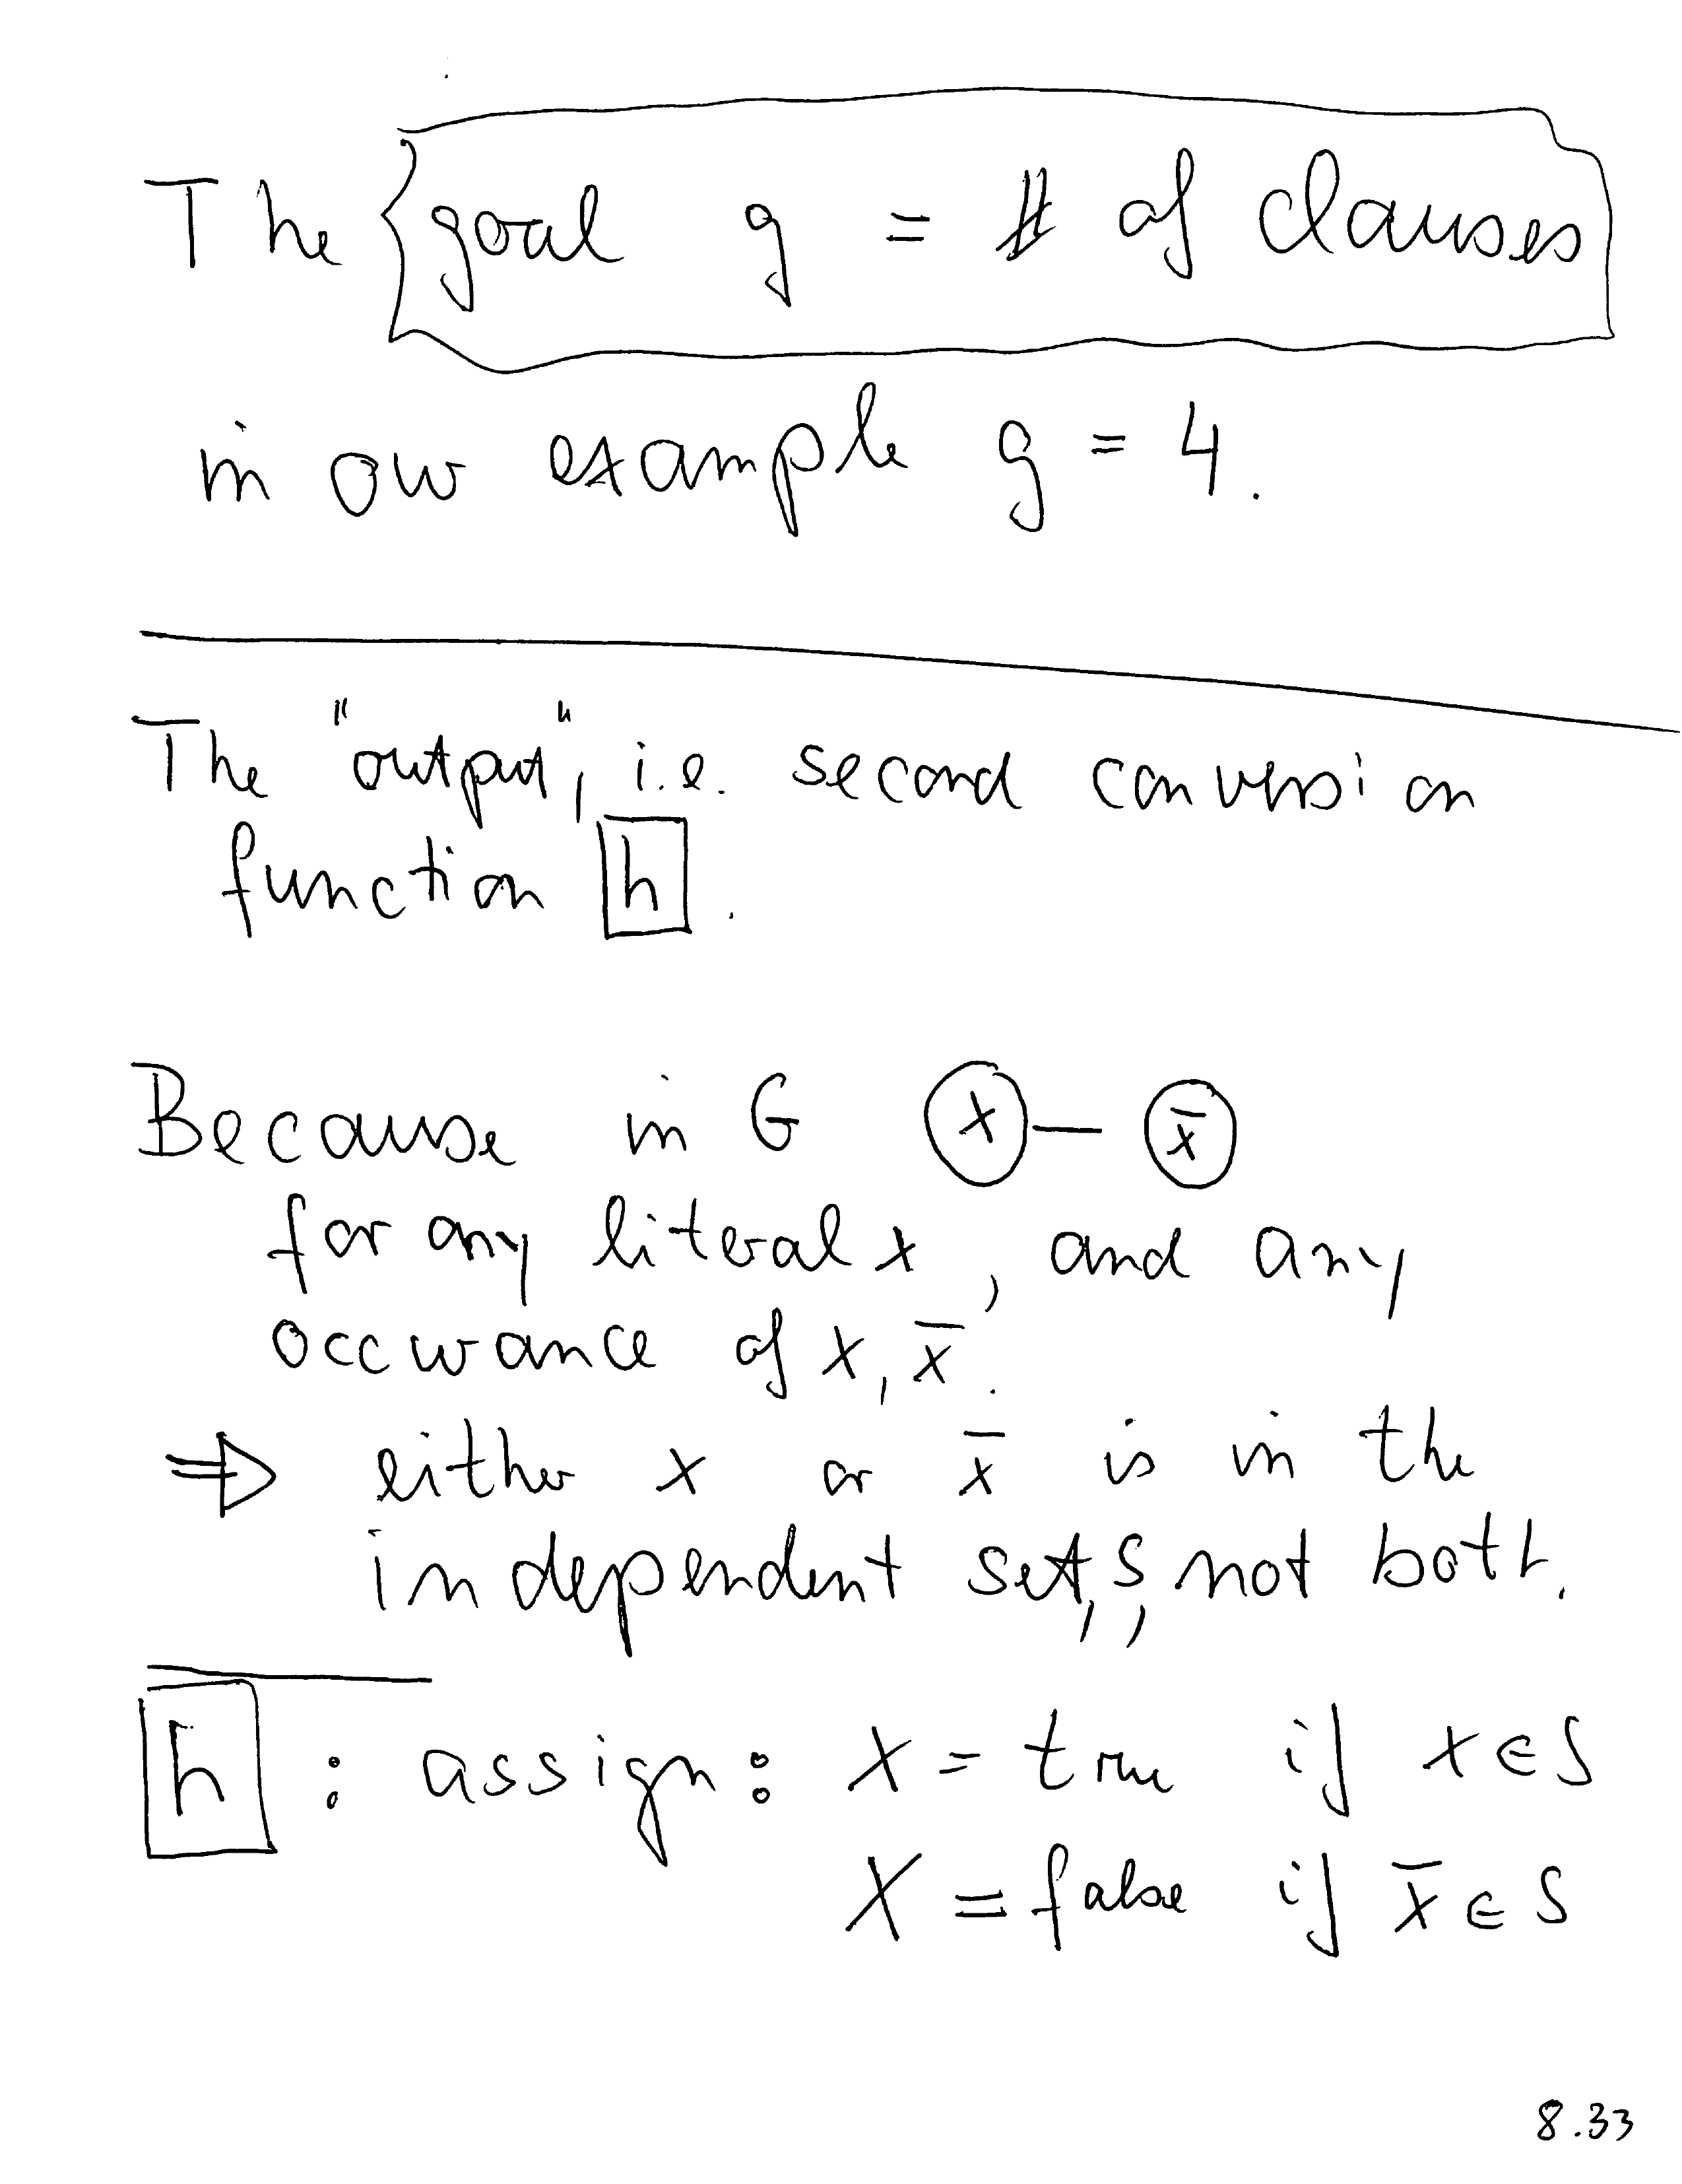 The goal g = # of clauses
in our example g = 4.
The "output", i.e. second conversion
function h.
Because in G x — x̄
for any literal x, and any
occurance of x, x̄.
⇒ either x or x̄ is in the
independent set, S, not both.
h : assign: x = true if x ∈ S
x = false if x̄ ∈ S
8.33